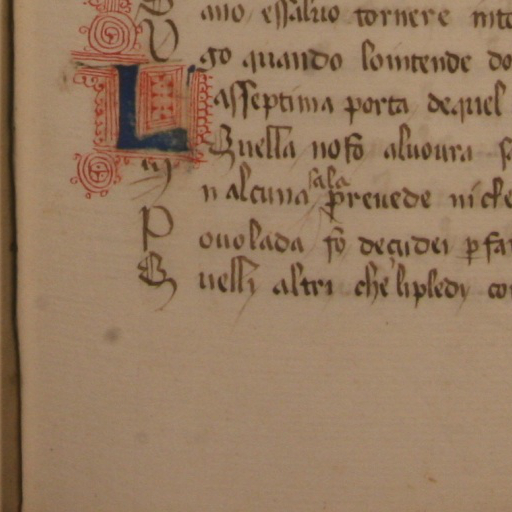 ano essaluo tornere
V go quando lointende do
L asseptima porta dequel
Quella nofo aluoura
n alcuna sala preuede
P ouolada fo deçudei
Quelli altri che lipledi